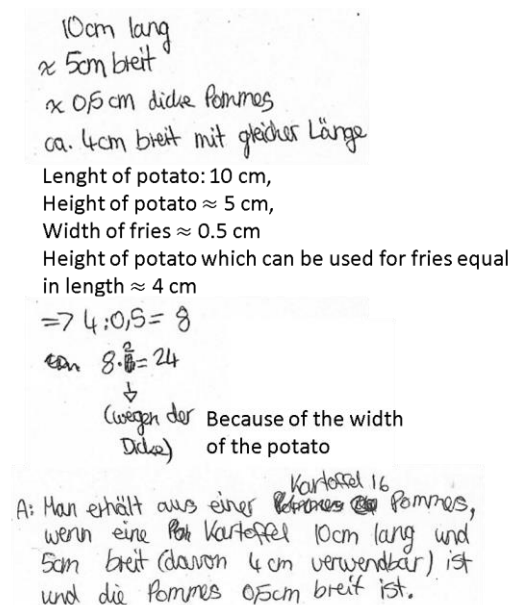 10cm lang
≈ 5cm breit
≈ 0,5 cm dicke Pommes
ca. 4cm breit mit gleicher Länge
Lenght of potato: 10 cm,
Height of potato ≈ 5 cm,
Width of fries ≈ 0.5 cm
Height of potato which can be used for fries equal
in length ≈ 4 cm
=> 4:0,5= 8
8·2=24
(wegen der Dicke)
Because of the width
of the potato
Kartoffel 16
A: Man erhält aus einer Pommes,
wenn eine Kartoffel 10cm lang und
5cm breit (davon 4cm verwendbar) ist
und die Pommes 0,5cm breit ist.